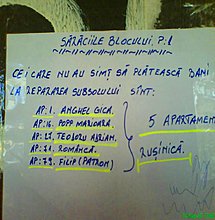 SĂRĂCIILE BLOCULUI, P:1
CEI CARE NU AU SIMȚ SĂ PLĂTEASCĂ BANI
LA REPARAREA SUBSOLULUI SÎNT:
AP: 1. ANGHEL GICA.
AP: 16. POPP MARIOARA
AP: 27. TEODORU ADRIAN.
AP: 71. ROMÂNCA.
AP: 79. FILIP (PATRON)
5 APARTAMEN
RUȘINICĂ.